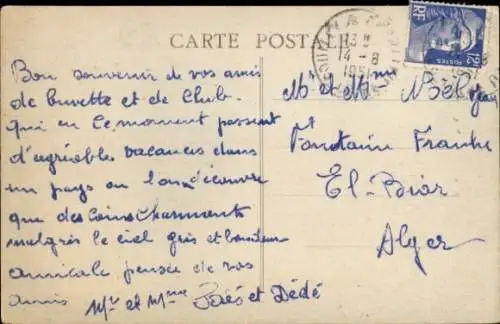 CARTE POSTALE
RF
12F
POSTES
13 H
14 - 8
1951
Bon souvenir de vos amis
de buvette et de Club.
Qui en ce moment passent
d'agréables vacances dans
un pays ou l'on découvre
que des coins charmants
malgrès le ciel gris et
amicale pensée de vos
amis
Mr et Mme et Dédé
M et Mme
Fontaine Fraiche
El-Biar
Alger